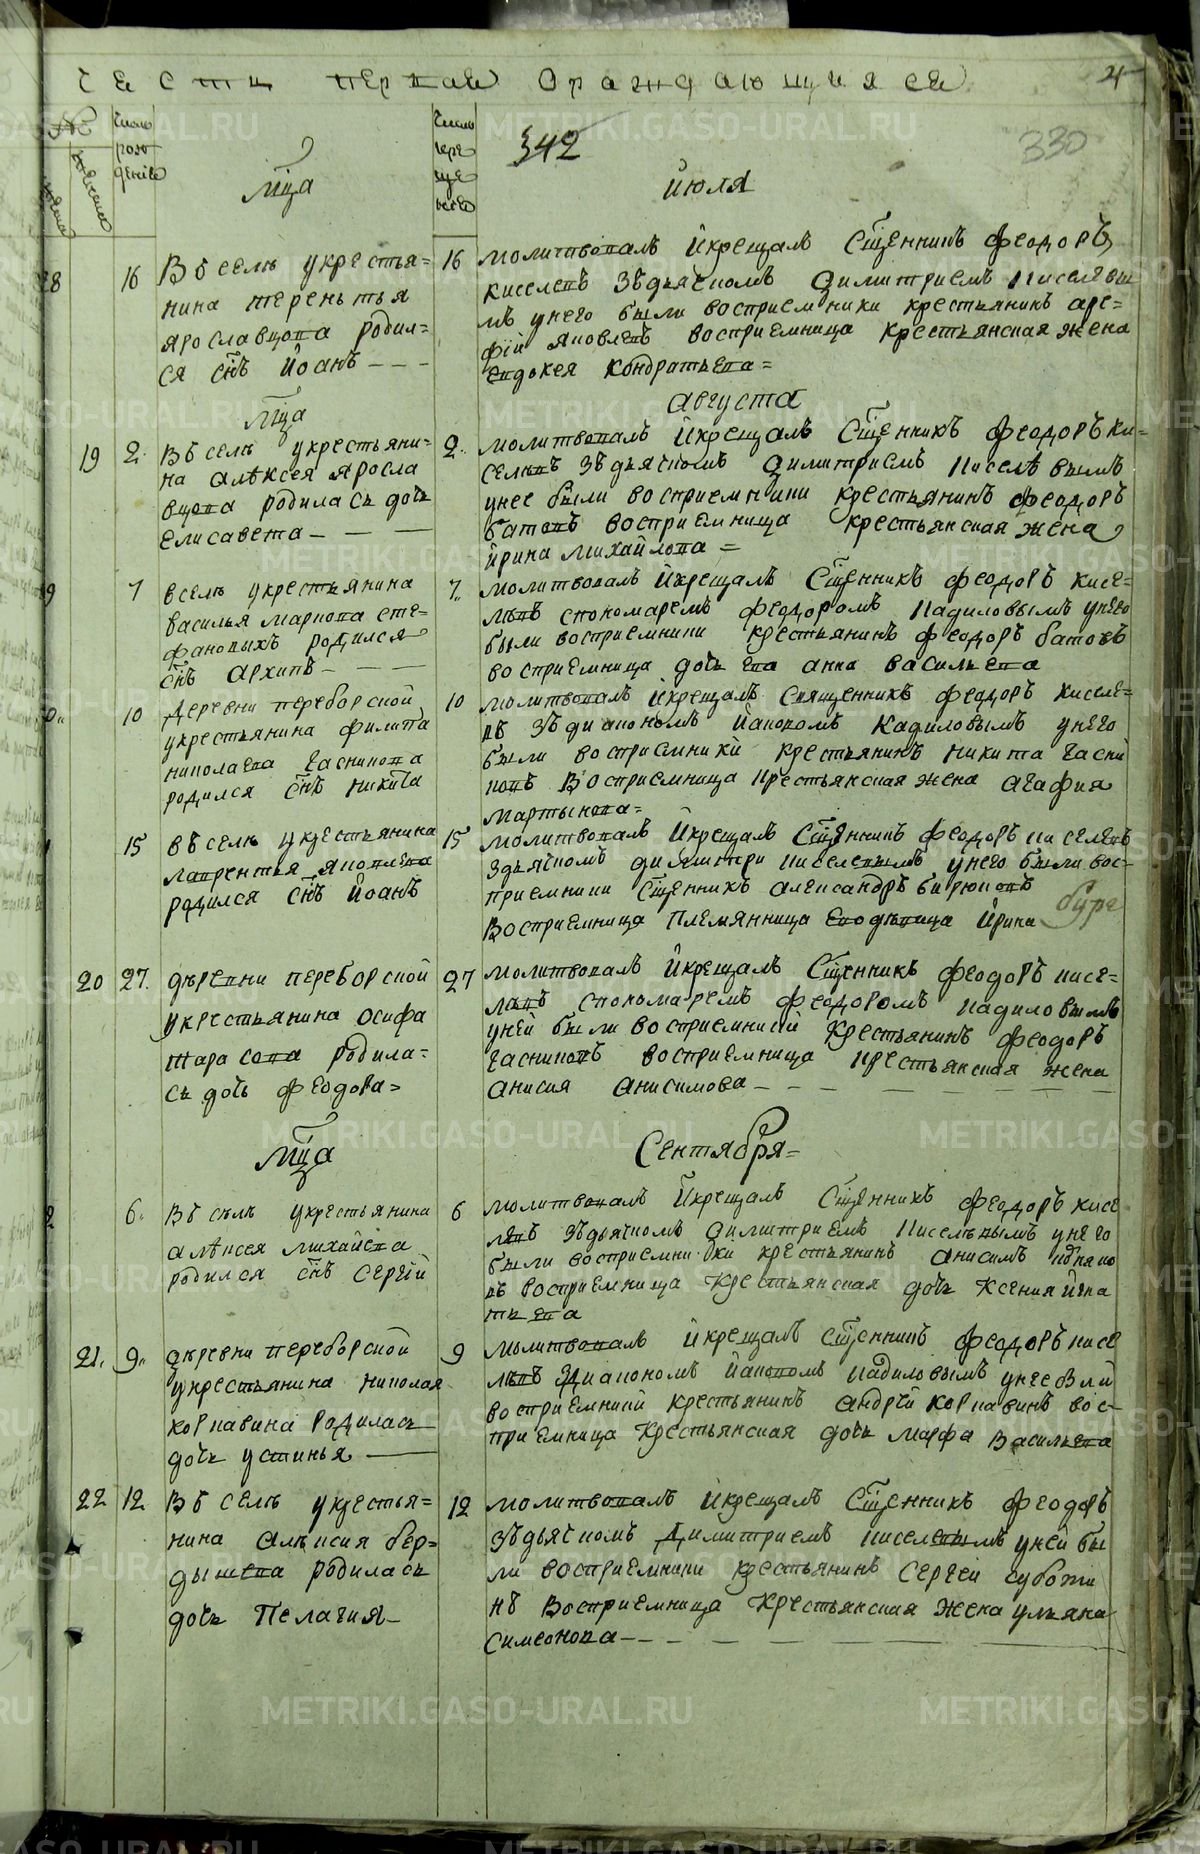 Части первая Ораждающияся 4
№
мужеска
женска
число
рож
дение
Мца
число
кре
ще
нiю
342
330
июля
28 16 Въ селѣ укрестья=
нина терентья
ярославцова родил=
ся снъ Иоанъ – – –
16 молитвовалъ Икрещалъ Сщенникъ феодоръ
киселевъ Здьячкомъ димитриемъ Киселевы
мъ унего были восприемники крестьянинъ аре=
фiй яковлевъ восприемница крестьянская жена
евдокея кондратьева=
Мца августа
19 2. Въ селѣ укрестьяни=
на алѣксея яросла
вцова родилась дочь
елисавета – – –
2. молитвовалъ Икрещалъ Сщенникъ феодоръ ки=
селевъ Здьячкомъ димитриемъ Киселѣвымъ
унее были восприемники крестьянинъ феодоръ
батовъ восприемница крестьянская жена
ирина михайлова =
29 7 в селѣ укрестьянина
василья маркова сте=
фановыхъ родился
снъ архипъ – – –
7,, молитвовалъ Икрещалъ Сщенникъ феодоръ кисе=
лѣвъ спономаремъ феодоромъ Кадиловымъ унего
были восприемники крестьянинъ феодоръ батовъ
восприемница дочь ева анна васильева
30,, 10 Деревни переборской
укрестьянина филипа
николаева часникова
родился снъ никита
10 молитвовалъ Икрещалъ Священникъ феодоръ киселе=
въ Здиакономъ Иаковомъ кадиловымъ унего
были восприемники крестьянинъ никита часни
ковъ Восприемница крестьянская жена агафия
мартынова=
15 въ селѣ укрестьянина
лаврентья яковлева
родился снъ Иоанъ
15 молитвовалъ Икрещалъ Сщенникъ феодоръ киселевъ
Здьячкомъ димитри киселевымъ унего были вос=
приемники Сщенникъ александръ бирюковъ
Восприемница племянница Ирина буре
20 27. дѣревни переборской
укрестьянина осифа
тарасова родила=
сь дочь феодора=
27 молитвовалъ Икрещалъ Сщенникъ феодоръ кисе=
лѣвъ спономаремъ феодоромъ кадиловымъ
уней были восприемники Крестьянинъ феодоръ
часниковъ восприемница крестьянская жена
анисия анисимова – – – – –
Мца Сентября=
6. Въ сѣлѣ укрестьянина
алѣксея михайева
родился снъ Сергiй
6 молитвовалъ Икрещалъ Сщенникъ феодоръ кисе
левъ Здьячкомъ димитриемъ Киселѣвымъ унего
были восприемники крестьянинъ анисимъ
въ восприемница крестьянская дочь Ксения игна
тьева
21. 9,, дѣревни переборской
укрестьянина николая
корнавина родилась
дочь устинья ––
9 молитвовалъ Икрещалъ Сщенникъ феодоръ кисе
лѣвъ Здиакономъ Иаковомъ кадиловымъ унее были
восприемники крестьянинъ андрей корнавинъ вос=
приемница крестьянская дочь марфа васильева
22 12 Въ селѣ укрестья=
нина алѣксия бер=
дышева родилась
дочь Пелагия –
12 молитвовалъ Икрещалъ Сщенникъ феодоръ
Здьячкомъ Димитриемъ киселевымъ уней бы
ли восприемники крестьянинъ Сергей суботи
нъ Восприемница Крестьянская жена ульяна
Симеонова – – – –